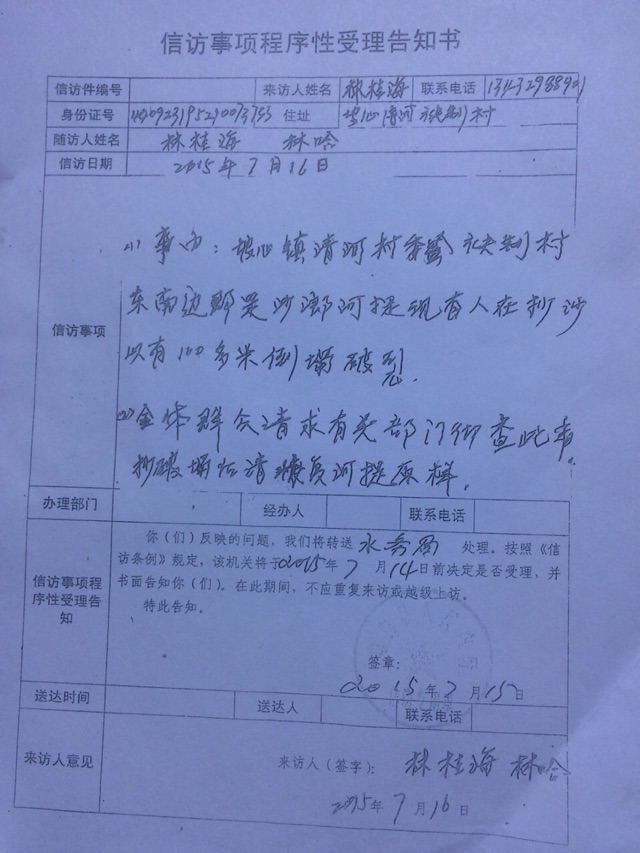 信访事项程序性受理告知书
信访件编号 来访人姓名 林桂海 联系电话
身份证号 住址 河 村
随访人姓名 林桂海 林哈
信访日期 2015年7月16日
信访事项
(1)事由:坡心镇清河村委 村
东南边 沙瑯河堤现有人在抄沙
以有100多米倒塌破烈.
(2)全体群众请求有关部门 查此事
抄破塌 河提原样.
办理部门 经办人 联系电话
信访事项程序性受理告知
你(们)反映的问题,我们将转送 水务局 处理。按照《信
访条例》规定,该机关将于2015年7月14日前决定是否受理,并
书面告知你(们)。在此期间,不应重复来访或越级上访。
特此告知。
签章:
2015年7月15日
送达时间 送达人 联系电话
来访人意见
来访人(签字): 林桂海 林哈
2015年7月16日